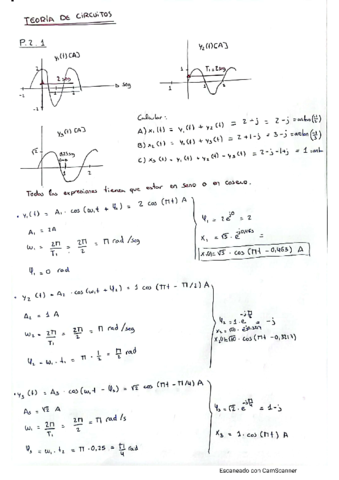 TEORÍA DE CIRCUITOS
P.2.1
y₁(t)[A]
y₂(t)[A]
2
2 seg
T₁ = 2 seg
-1
1
1
y₃(t)[A]
√2
Calcular:
A) x₁(t) = y₁(t) + y₂(t) = 2-j = 2-j =
B) x₂(t) = y₁(t) + y₃(t) = 2+1-j = 3-j =
C) x₃(t) = y₁(t) + y₂(t) - y₃(t) = 2-j-1+j = 1
Todas las expresiones tienen que estar en seno o en coseno.
• y₁(t) = A₁ · cos(ω₁t + φ₁) = 2 cos(πt) A
A₁ = 2A
ω₁ = 2π/T₁ = 2π/2 = π rad/seg
φ₁ = 0 rad
Y₁ = 2 e^j0 = 2
x₁ = √5 · e
x₁(t) = √5 · cos(πt - 0,463) A
• y₂(t) = A₂ · cos(ω₂t + φ₂) = 1 cos(πt - π/2) A
A₂ = 1 A
ω₂ = 2π/T₂ = 2π/2 = π rad/seg
φ₂ = ω₂ · t₂ = π · 1/2 = π/2 rad
= -j
cos(πt - 0,3217)
• y₃(t) = A₃ · cos(ω₃t - φ₃) = √2 cos(πt - π/4) A
A₃ = √2 A
ω₃ = 2π/T₃ = 2π/2 = π rad/s
φ₃ = ω₃ · t₃ = π · 0,25 = π/4 rad
= 1-j
x₃ = 1 · cos(πt) A
Escaneado con CamScanner